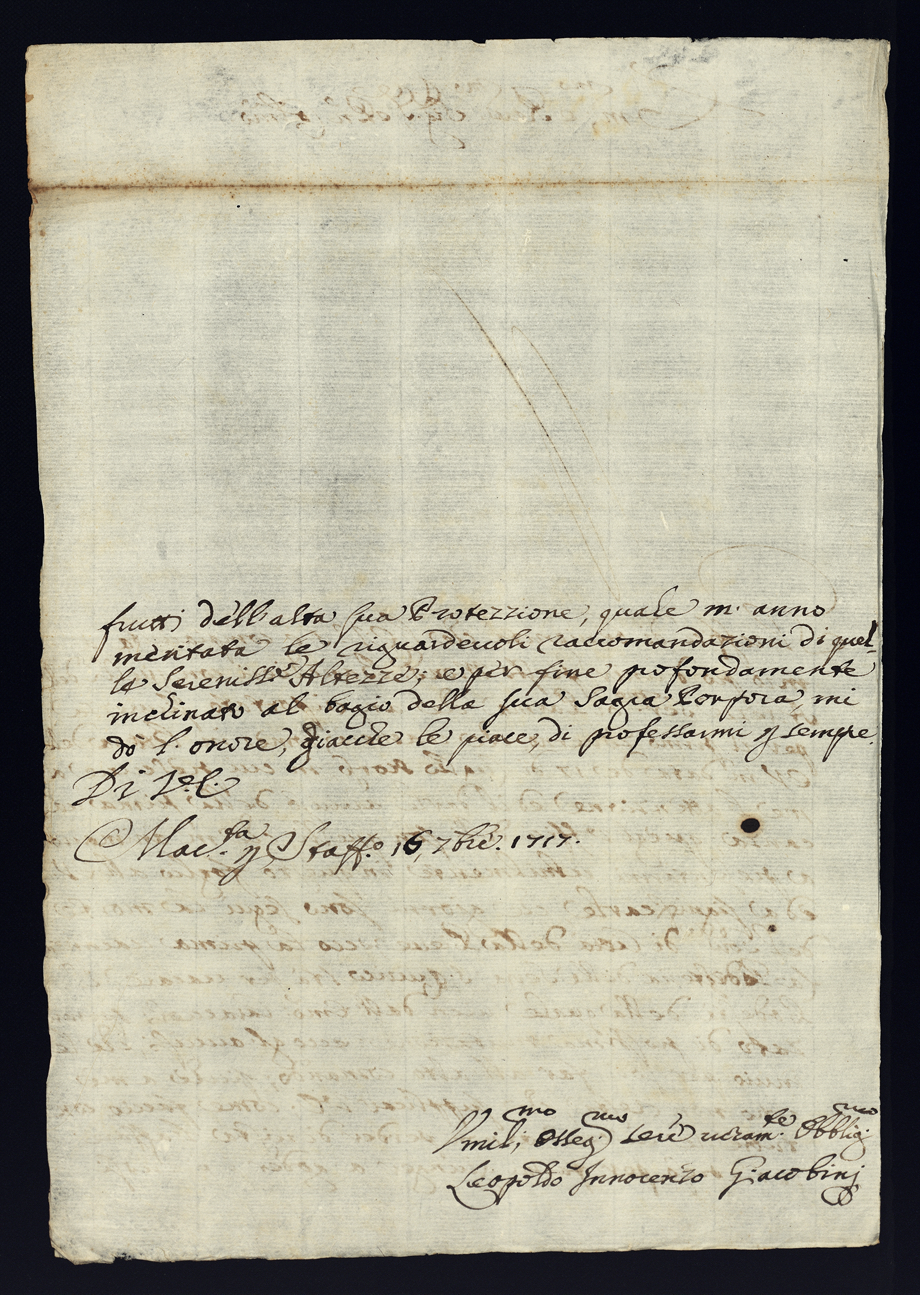 frutti dell'alta sua Protezzione, quale m' anno
meritata le riguardevoli raccomandazioni di quel-
le Sereniss.e Altezze; e per fine profondamente
inclinato al bagio della sua Sagra Porpora, mi
do l'onore, giacche le piace, di professarmi p sempre
Di V. E.
Mac.ta p Staff.o 16, 7bre. 1717.
Umil.mo, osseg.mo ser.e veram.te Obblig.mo
Leopoldo Innocenzo Giacobinj